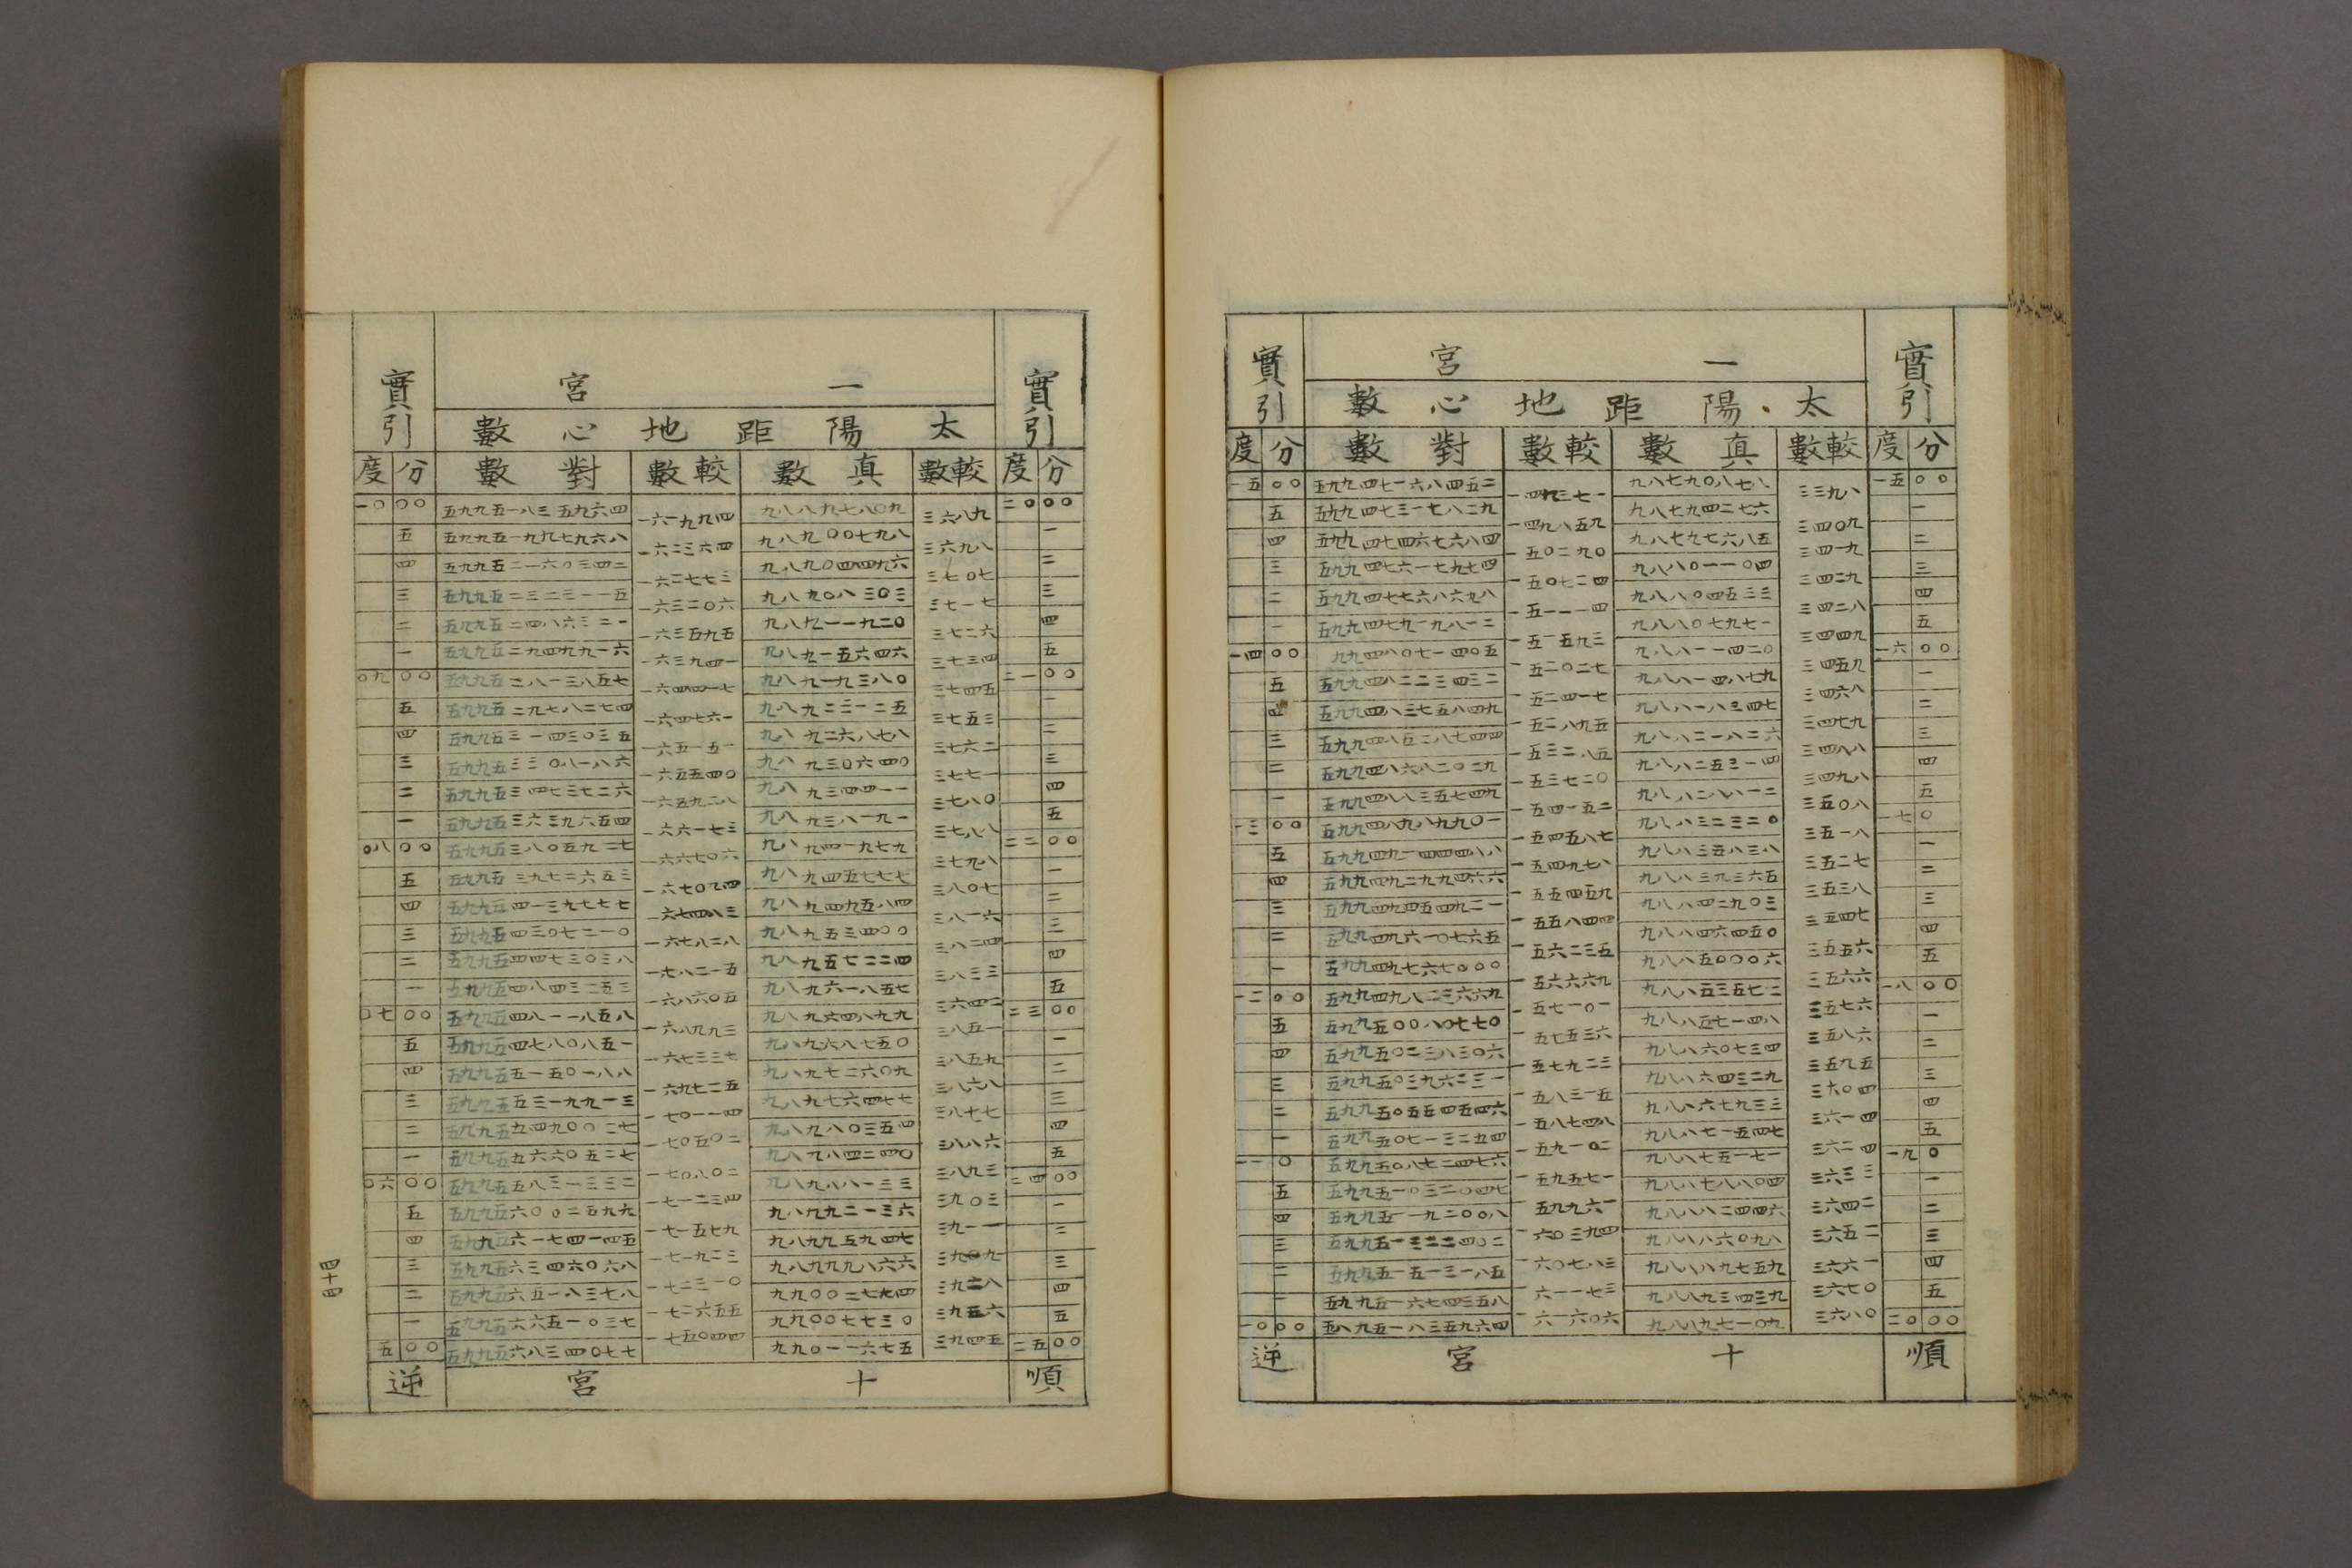 實引 一宮 實引
太陽距地心數
度 分 較數 真數 較數 對數 度 分
一五 〇〇 九八七九〇八七八 五九九四七一六八四五二 一五 〇〇
三三九八 一四九三七一
一 九八七九四二七六 五九九四七三一七八二九 五
三四〇九 一四九八五九
二 九八七九七六八五 五九九四七四六七六八四 四
三四一九 一五〇二九〇
三 九八八〇一一〇四 五九九四七六一七九七四 三
三四二九 一五〇七二四
四 九八八〇四五三三 五九九四七七六八六九八 二
三四二八 一五一一一四
五 九八八〇七九七一 五九九四七九一九八一二 一
三四四九 一五一五九三
一六 〇〇 九八八一一四二〇 九九四八〇七一四〇五 一四 〇〇
三四五九 一五二〇二七
一 九八八一四八七九 五九九四八二二三四三二 五
三四六八 一五二四一七
二 九八八一八三四七 五九九四八三七五八四九 四
三四七九 一五二八九五
三 九八八二一八二六 五九九四八五二八七四四 三
三四八八 一五三二八五
四 九八八二五三一四 五九九四八六八二〇二九 二
三四九八 一五三七二〇
五 九八八二八八一二 五九九四八八三五七四九 一
三五〇八 一五四一五二
一七 〇 九八八三二三二〇 五九九四八九八九九〇一 一三 〇〇
三五一八 一五四五八七
一 九八八三五八三八 五九九四九一四四四八八 五
三五二七 一五四九七八
二 九八八三九三六五 五九九四九二九九四六六 四
三五三八 一五五四五九
三 九八八四二九〇三 五九九四九四五四九二一 三
三五四七 一五五八四四
四 九八八四六四五〇 五九九四九六一〇七六五 二
三五五六 一五六二三五
五 九八八五〇〇〇六 五九九四九七六七〇〇〇 一
三五六六 一五六六六九
一八 〇〇 九八八五三五七二 五九九四九八二三六六九 一二 〇〇
三五七六 一五七一〇一
一 九八八五七一四八 五九九五〇〇八〇七七〇 五
三五八六 一五七五三六
二 九八八六〇七三四 五九九五〇二三八三〇六 四
三五九五 一五七九二三
三 九八八六四三二九 五九九五〇三九六二三一 三
三六〇四 一五八三一五
四 九八八六七九三三 五九九五〇五五四五四六 二
三六一四 一五八七四八
五 九八八七一五四七 五九九五〇七一三二九四 一
三六二四 一五九一〇二
一九 〇 九八八七五一七一 五九九五〇八七二四七六 一一 〇
三六三三 一五九五七一
一 九八八七八八〇四 五九九五一〇三二〇四七 五
三六四二 一五九九六一
二 九八八八二四四六 五九九五一一九二〇〇八 四
三六五二 一六〇三九四
三 九八八八六〇九八 五九九五一三五二四〇二 三
三六六一 一六〇七八三
四 九八八八九七五九 五九九五一五一三一八五 二
三六七〇 一六一一七三
五 九八八九三四三九 五九九五一六七四三五八 一
三六八〇 一六一六〇六
二〇 〇〇 九八八九七一〇九 五八九五一八三五九六四 一〇 〇〇
順 十宮 逆
實引 一宮 實引
太陽距地心數
度 分 較數 真數 較數 對數 度 分
二〇 〇〇 九八八九七八〇九 五九九五一八三五九六四 一〇 〇〇
三六八九 一六一九九四
一 九八九〇〇七九八 五九九五一九九七九六八 五
三六九八 一六二三六四
二 九八九〇四四九六 五九九五二一六〇三四二 四
三七〇七 一六二七七三
三 九八九〇八三〇三 五九九五二三二三一一五 三
三七一七 一六三二〇六
四 九八九一一九二〇 五九九五二四八六三二一 二
三七二六 一六三五九五
五 九八九一五六四六 五九九五二九四九九一六 一
三七三四 一六三九四一
二一 〇〇 九八九一九三八〇 五九九五二八一三八五七 〇九 〇〇
三七四五 一六四四一七
一 九八九二三一二五 五九九五二九七八二七四 五
三七五三 一六四七六一
二 九八九二六八七八 五九九五三一四三〇三五 四
三七六二 一六五一五一
三 九八九三〇六四〇 五九九五三三〇八一八六 三
三七七一 一六五五四〇
四 九八九三四四一一 五九九五三四七三七二六 二
三七八〇 一六五九二八
五 九八九三八一九一 五九九五三六三九六五四 一
三七八八 一六六一七三
二二 〇〇 九八九四一九七九 五九九五三八〇五九二七 〇八 〇〇
三七九八 一六六七〇六
一 九八九四五七七七 五九九五三九七二六五三 五
三八〇七 一六七〇九四
二 九八九四九五八四 五九九五四一三九七七七 四
三八一六 一六七四八三
三 九八九五三四〇〇 五九九五四三〇七二一〇 三
三八二四 一六七八二八
四 九八九五七二二四 五九九五四四七三〇三八 二
三八三三 一七八二一五
五 九八九六一八五七 五九九五四八四三二五三 一
三六四二 一六八六〇五
二三 〇〇 九八九六四八九九 五九九五四八一一八五八 〇七 〇〇
三八五一 一六八九九三
一 九八九六八七五〇 五九九五四七八〇八五一 五
三八五九 一六七三三七
二 九八九七二六〇九 五九九五五一五〇一八八 四
三八六八 一六九七二五
三 九八九七六四七七 五九九五五三一九九一三 三
三八七七 一七〇一一四
四 九八九八〇三五四 五九九五五四九〇〇二七 二
三八八六 一七〇五〇二
五 九八九八四二四〇 五九九五五六六〇五二七 一
三八九三 一七〇八〇二
二四 〇〇 九八九八八一三三 五九九五五八三一三三二 〇六 〇〇
三九〇三 一七一二三四
一 九八九九二一三六 五九九五六〇〇二五九六 五
三九一一 一七一五七九
二 九八九九五九四七 五九九五六一七四一四五 四
三九〇九 一七一九二三
三 九八九九九八六六 五九九五六三四六〇六八 三
三九二八 一七二三一〇
四 九九〇〇二七九四 五九九五六五一八三七八 二
三九五六 一七二六五五
五 九九〇〇七七三〇 五九九五六六五一〇三七 一
三九四五 一七五〇四四
二五 〇〇 九九〇一一六七五 五九九五六八三四〇七七 五 〇〇
順 十宮 逆
四十四